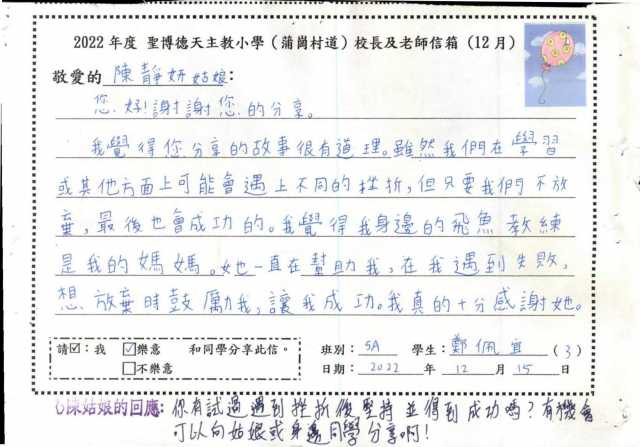 2022 年度 聖博德天主教小學 (蒲崗村道) 校長及老師信箱 (12月)
敬愛的 陳靜妍姑娘:
您好!謝謝您的分享。
我覺得您分享的故事很有道理。雖然我們在學習
或其他方面上可能會遇上不同的挫折,但只要我們不放
棄,最後也會成功的。我覺得我身邊的飛魚教練
是我的媽媽。她也一直在幫助我,在我遇到失敗,
想放棄時鼓勵我,讓我成功。我真的十分感謝她。
請☑:我 ☑樂意 和同學分享此信。 班別: 5A 學生: 鄭佩宜 (3)
□不樂意 日期: 2022 年 12 月 15 日
陳姑娘的回應: 你有試過遇到挫折後堅持並得到成功嗎?有機會
可以向姑娘或身邊同學分享啊!